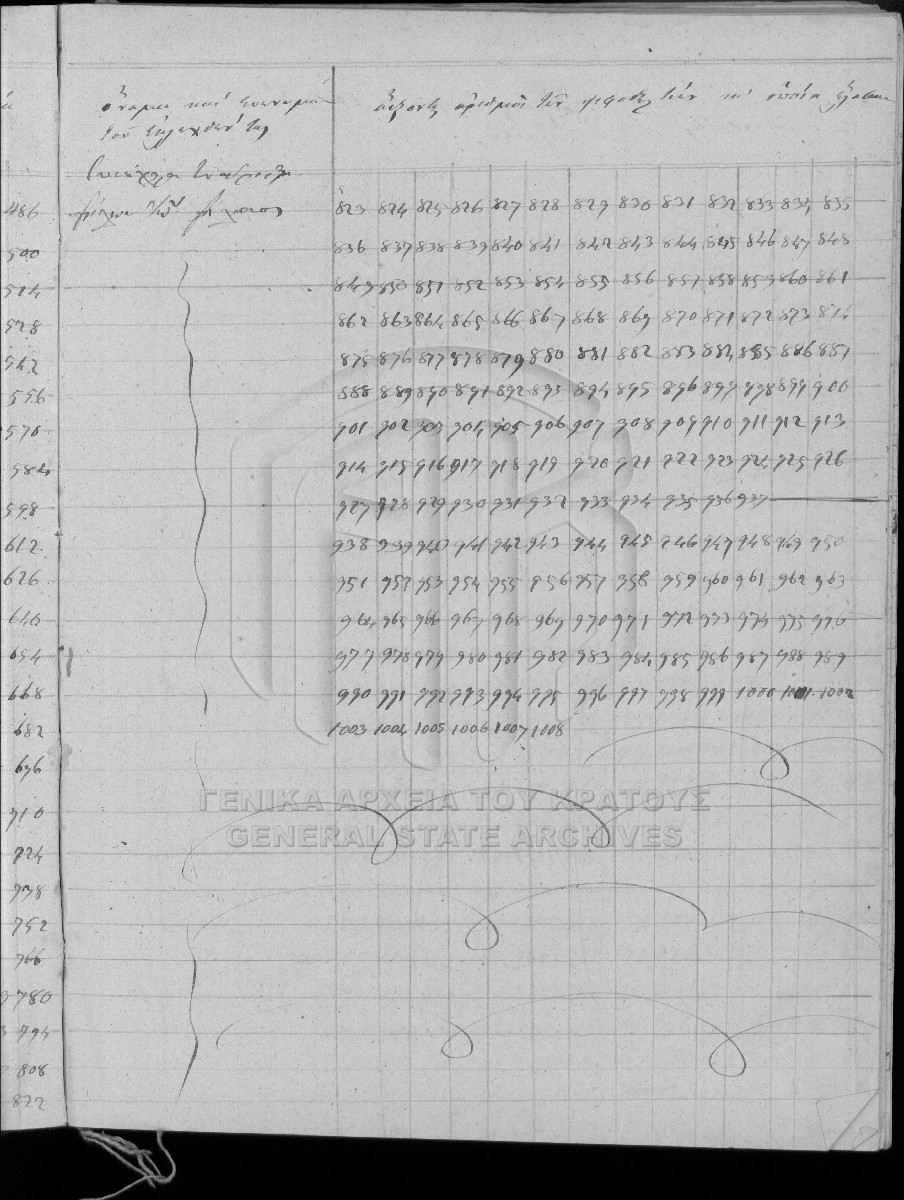 ὄνομα καὶ ἐπώνυμον
τοῦ ἐκλεχθέντος
αὔξοντες ἀριθμοὶ τῶν ψηφοδελτίων τὰ ὁποῖα ἔλαβον
486 823 824 825 826 827 828 829 830 831 832 833 834 835
500 836 837 838 839 840 841 842 843 844 845 846 847 848
514 849 850 851 852 853 854 855 856 857 858 859 860 861
528 862 863 864 865 866 867 868 869 870 871 872 873 874
542 875 876 877 878 879 880 881 882 883 884 885 886 887
556 888 889 890 891 892 893 894 895 896 897 898 899 900
570 901 902 903 904 905 906 907 908 909 910 911 912 913
584 914 915 916 917 918 919 920 921 922 923 924 925 926
598 927 928 929 930 931 932 933 934 935 936 937
612 938 939 940 941 942 943 944 945 946 947 948 949 950
626 951 952 953 954 955 956 957 958 959 960 961 962 963
640 964 965 966 967 968 969 970 971 972 973 974 975 976
654 977 978 979 980 981 982 983 984 985 986 987 988 989
668 990 991 992 993 994 995 996 997 998 999 1000 1001 1002
682 1003 1004 1005 1006 1007 1008
696
710
724
738
752
766
780
794
808
822
ΓΕΝΙΚΑ ΑΡΧΕΙΑ ΤΟΥ ΚΡΑΤΟΥΣ
GENERAL STATE ARCHIVES